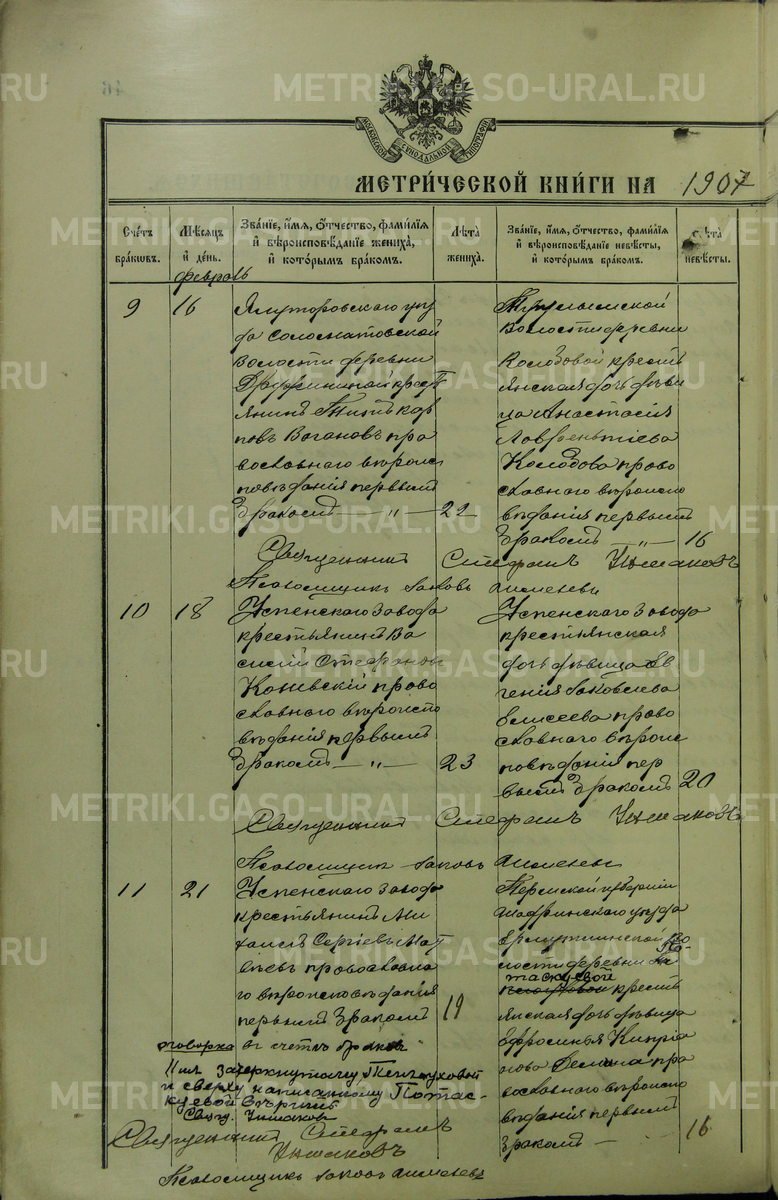 МОСКОВСКОЙ СѴНОДАЛЬНОЙ ТИПОГРАФІИ
МЕТРИ́ЧЕСКОЙ КНИ́ГИ НА 1907
Сче́тъ бра́ковъ.
Мѣ́сяцъ и҆ де́нь.
Зва́нїе, и҆́мя, ѻ҆́тчество, фами́лїя и҆ вѣроисповѣ́данїе жениха̀, и҆ кото́рымъ бра́комъ.
Лѣ́та жениха̀.
Зва́нїе, и҆́мя, ѻ҆́тчество, фами́лїя и҆ вѣроисповѣ́данїе невѣ́сты, и҆ кото́рымъ бра́комъ.
Лѣ́та невѣ́сты.
февраль
9
16
Ялуторовскаго уѣз
да Солоноватовской
волости деревни
крест
янинъ Титъ Кар
повъ Вагановъ пра
вославнаго вѣроис
повѣданія первымъ
бракомъ — „ —
22
волости деревни
кресть
янская дочь дѣви
ца Анастасія
Лаврентіева
право
славнаго вѣроиспо
вѣданія первымъ
бракомъ — „ —
16
Священникъ Стефанъ Ушаковъ
Псаломщикъ Іаковъ
10
18
Успенскаго завода
крестьянинъ Ва
силій Стефановъ
Коневскій право
славнаго вѣроиспо
вѣданія первымъ
бракомъ — „ —
23
Успенскаго завода
крестьянская
дочь дѣвица Ев
генія Іаковлева
Елисеева право
славнаго вѣроис
повѣданія пер
вымъ бракомъ
20
Священникъ Стефанъ Ушаковъ
Псаломщикъ Іаковъ
11
21
Успенскаго завода
крестьянинъ Ми
хаилъ Сергіевъ Мат
вѣевъ православна
го вѣроисповѣданія
первымъ бракомъ
19
Пермской губерніи
Шадринскаго уѣзда
во
лости деревни По
таскуевой
кресть
янская дочь дѣвица
Ефросинья Кипріа
нова пра
вославнаго вѣроиспо
вѣданія первымъ
бракомъ —
16
оговорка въ счетѣ брака
11 мъ зачеркнутому
и сверху написанному Потас-
куевой вѣрить
Свящ. Ушаковъ
Священникъ Стефанъ
Ушаковъ
Псаломщикъ Іаковъ
METRIKI.GASO-URAL.RU